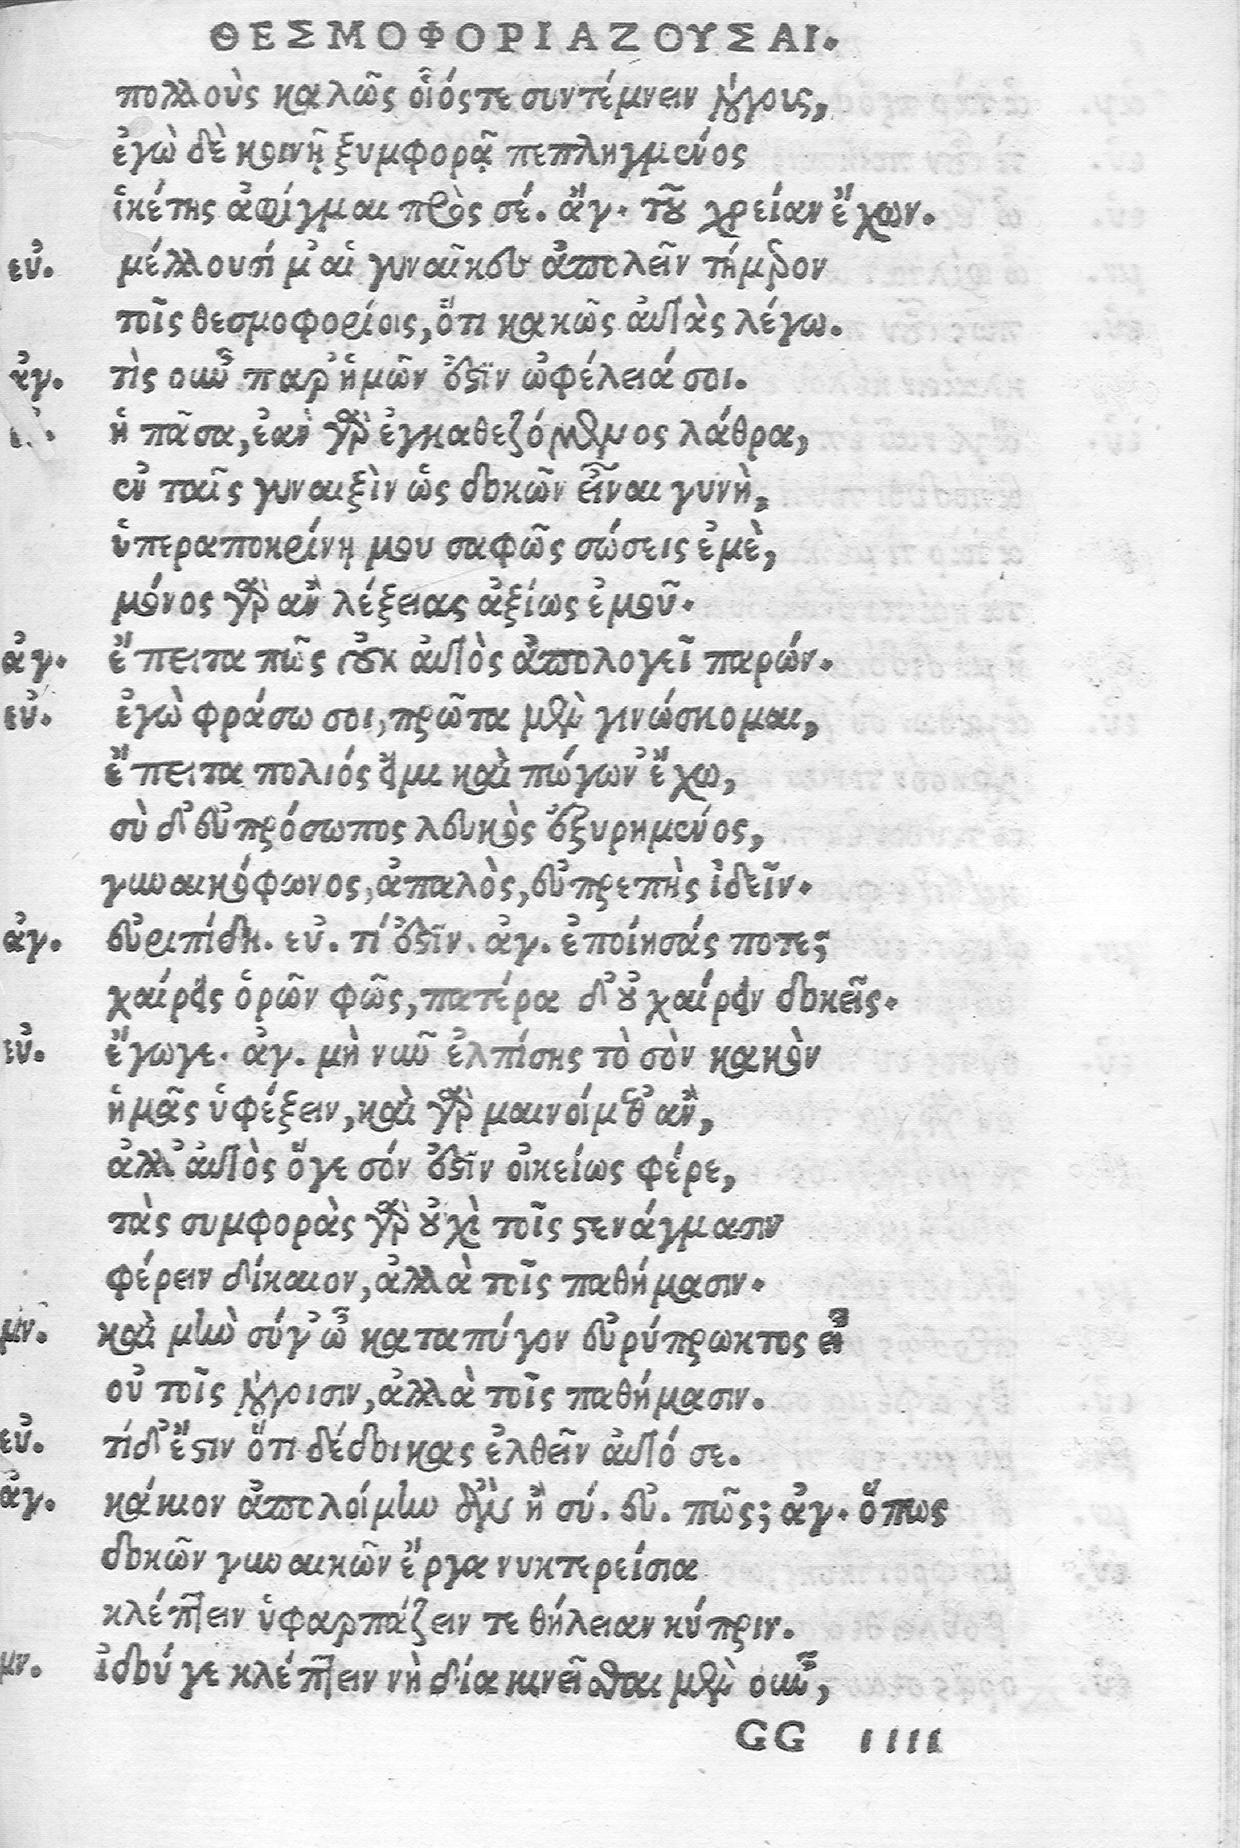 ΘΕΣΜΟΦΟΡΙΑΖΟΥΣΑΙ.
πολλοὺς καλῶς οἷόςτε συντέμνειν λόγους,
ἐγὼ δὲ κοινῇ ξυμφορᾷ πεπληγμένος
ἱκέτης ἀφίγμαι πρὸς σέ. ἄγ. τοῦ χρείαν ἔχων.
εὐ. μέλλουσί μ' αἱ γυναῖκες ἀπολεῖν τήμερον
τοῖς θεσμοφορίοις, ὅτι κακῶς αὐτὰς λέγω.
ἀγ. τὶς οὖν παρ' ἡμῶν ἐστὶν ὠφέλειά σοι.
εὐ. ἡ πᾶσα, ἐὰν γὰρ ἐγκαθεζόμενος λάθρα,
ἐν ταῖς γυναιξὶν ὡς δοκῶν εἶναι γυνὴ,
ὑπεραποκρίνῃ μου σαφῶς σώσεις ἐμὲ,
μόνος γὰρ ἂν λέξειας ἀξίως ἐμοῦ.
ἀγ. ἔπειτα πῶς οὐκ αὐτὸς ἀπολογεῖ παρών.
εὐ. ἐγὼ φράσω σοι, πρῶτα μὲν γινώσκομαι,
ἔπειτα πολιός εἰμι καὶ πώγων' ἔχω,
σὺ δ' εὐπρόσωπος λευκὸς ἐξυρημένος,
γυναικόφωνος, ἁπαλὸς, εὐπρεπὴς ἰδεῖν.
ἀγ. εὐριπίδη. εὐ. τί ἐστῖν. ἀγ. ἐποίησάς ποτε;
χαίρεις ὁρῶν φῶς, πατέρα δ' οὐ χαίρειν δοκεῖς.
εὐ. ἔγωγε. ἀγ. μὴ νῦν ἐλπίσῃς τὸ σὸν κακὸν
ἡμᾶς ὑφέξειν, καὶ γὰρ μαινοίμεθ' ἂν,
ἀλλ' αὐτὸς ὅγε σόν ἐστῖν οἰκείως φέρε,
τὰς συμφορὰς γὰρ οὐχὶ τοῖς στενάγμασιν
φέρειν δίκαιον, ἀλλὰ τοῖς παθήμασιν.
μν. καὶ μὴν σύγ' ὦ καταπύγον εὐρύπρωκτος εἶ
οὐ τοῖς λόγοισιν, ἀλλὰ τοῖς παθήμασιν.
εὐ. τί δ' ἔστιν ὅτι δέδοικας ἐλθεῖν αὐτό σε.
ἀγ. κάκιον ἀπολοίμην ἂν ἢ σύ. εὐ. πῶς; ἀγ. ὅπως
δοκῶν γυναικῶν ἔργα νυκτερείσια
κλέπτειν ὑφαρπάζειν τε θήλειαν κύπριν.
μν. ἰδού γε κλέπτειν νὴ δία κινεῖσθαι μὲν οὖν,
GG IIII